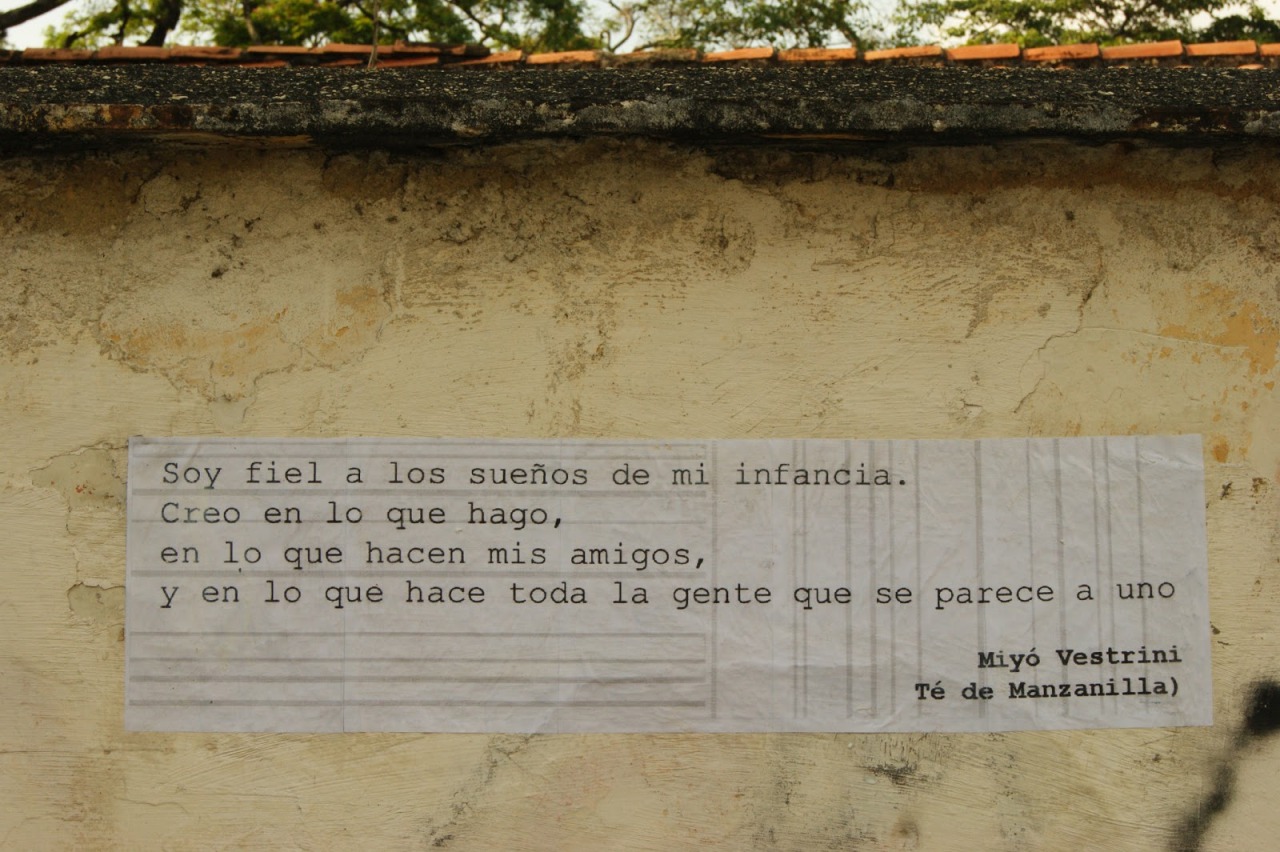 Soy fiel a los sueños de mi infancia.
Creo en lo que hago,
en lo que hacen mis amigos,
y en lo que hace toda la gente que se parece a uno
Miyó Vestrini
Té de Manzanilla)